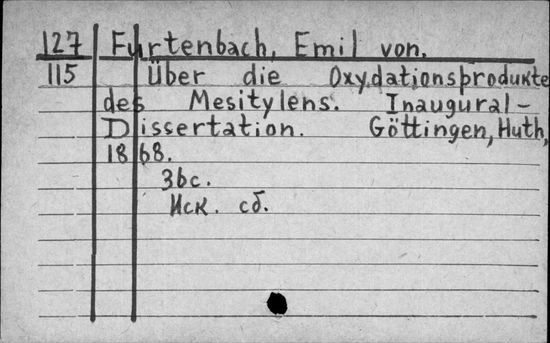 127 Furtenbach, Emil von.
115 Über die Oxydationsprodukte
des Mesitylens. Inaugural-
Dissertation. Göttingen, Huth,
1868.
3bc.
Иск. сб.